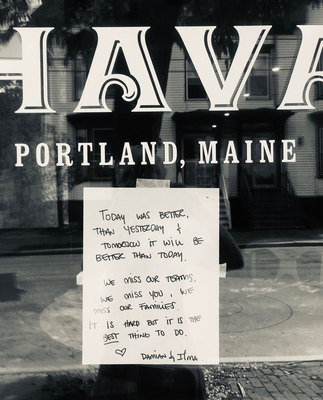 HAVA
PORTLAND, MAINE
TODAY WAS BETTER.
THAN YESTERDAY &
TOMORROW IT WILL BE
BETTER THAN TODAY.
WE MISS OUR TEAMS.
WE MISS YOU, WE
MISS OUR FAMILIES.
IT IS HARD BUT IT IS THE
BEST THING TO DO.
♡ DAMIAN & ILMA